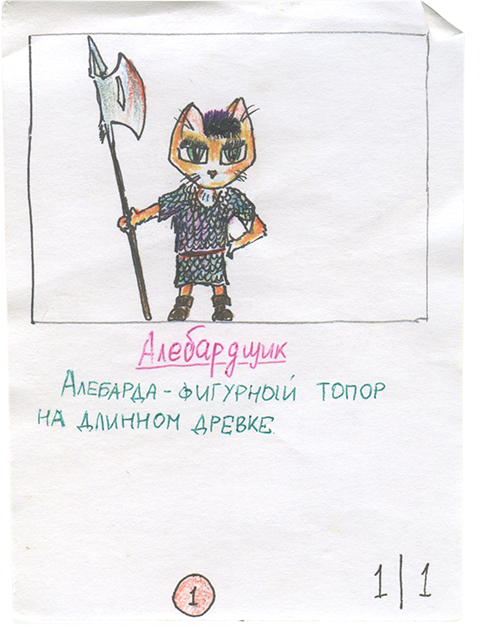 Алебардщик
Алебарда - фигурный топор
на длинном древке.
1
1|1